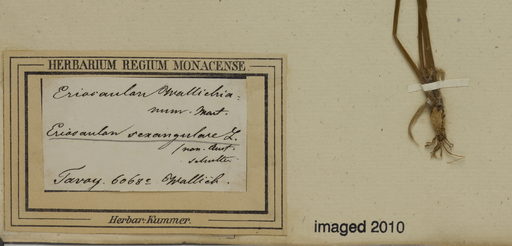 HERBARIUM REGIUM MONACENSE.
Eriocaulon Wallichia=
num. Mart.
Eriocaulon sexangulare L.
(non. Aut.
Tavoy. 6068c Wallich.
Herbar. Kummer.
imaged 2010